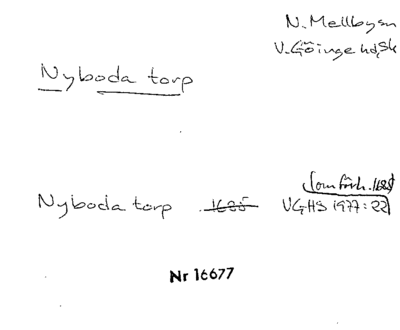 N. Mellbysn
V. Göinge hd, Sk
Nyboda torp
Nyboda torp 1685 VGHS 1977:22
Nr 16677